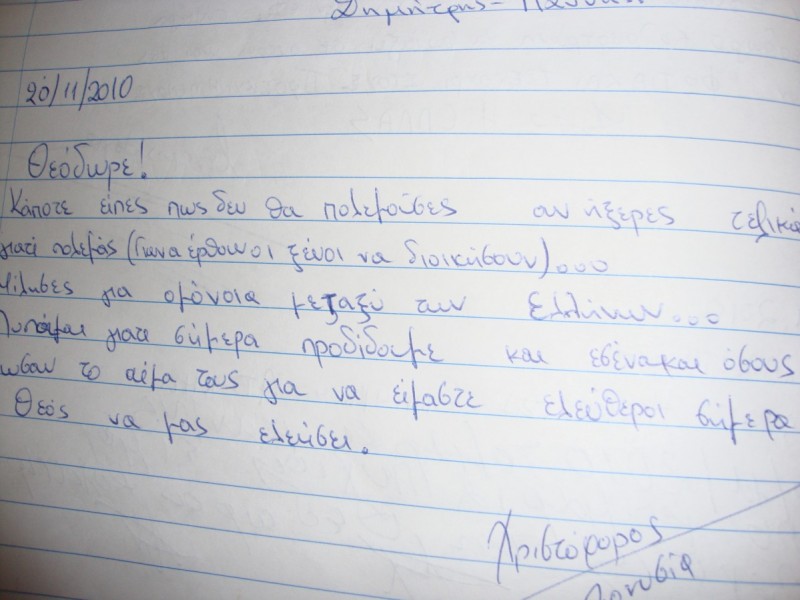 Δημήτρης -
20/11/2010
Θεόδωρε!
Κάποτε είπες πως δεν θα πολεμούσες αν ήξερες τελικά
γιατί πολεμάς (Για να έρθουν οι ξένοι να διοικήσουν)...
Μίλησες για ομόνοια μεταξύ των Ελλήνων...
Λυπάμαι γιατί σήμερα προδίδουμε και εσένα και όσους
το αίμα τους για να είμαστε ελεύθεροι σήμερα
Θεός να μας ελεήσει.
Χριστόφορος